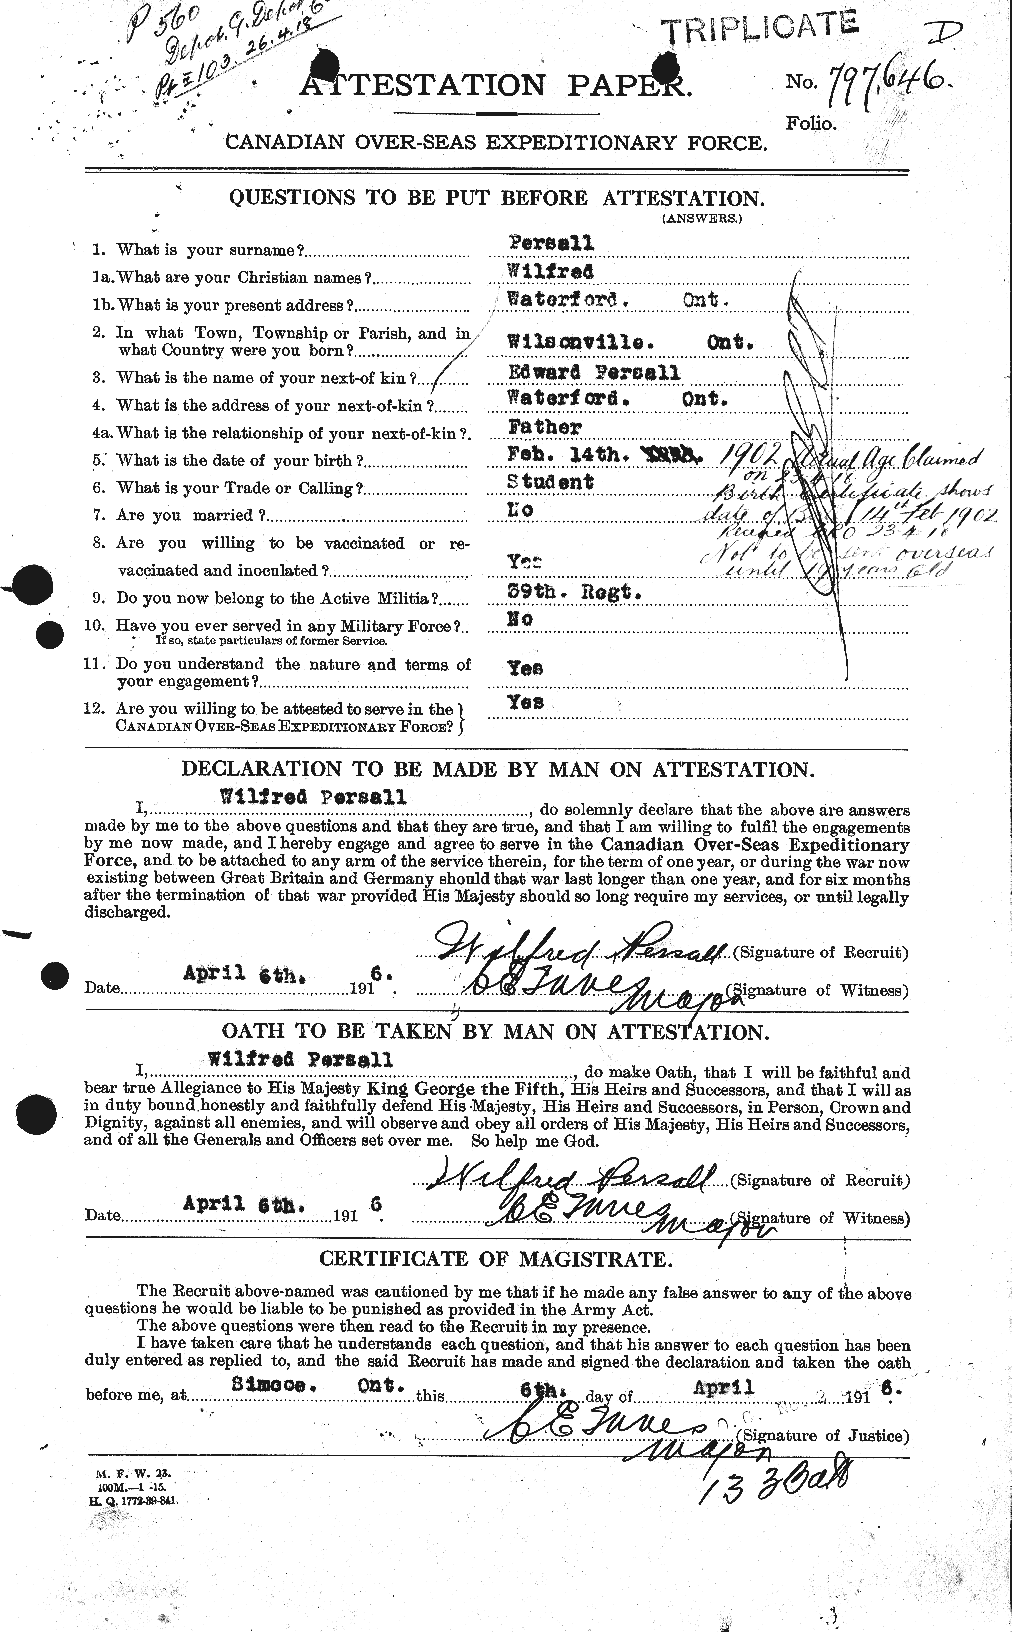 P 560
Depot. G. Depot
Pt II 103. 26.4.18
TRIPLICATE
D
ATTESTATION PAPER.
No. 797,646.
Folio.
CANADIAN OVER-SEAS EXPEDITIONARY FORCE.
QUESTIONS TO BE PUT BEFORE ATTESTATION.
(ANSWERS.)
1. What is your surname? Persall
1a. What are your Christian names? Wilfred
1b. What is your present address? Waterford. Ont.
2. In what Town, Township or Parish, and in
what Country were you born? Wilsonville. Ont.
3. What is the name of your next-of kin? Edward Persall
4. What is the address of your next-of-kin? Waterford. Ont.
4a. What is the relationship of your next-of-kin? Father
5. What is the date of your birth? Feb. 14th. 1902 Actual Age Claimed
on 23.4.18
6. What is your Trade or Calling? Student
Birth Certificate shows
7. Are you married? No
date of 14th Feb 1902
23 4 18
8. Are you willing to be vaccinated or re-
vaccinated and inoculated? Yes
Not to be sent overseas
until 19 years old
9. Do you now belong to the Active Militia? 39th. Regt.
10. Have you ever served in any Military Force? No
If so, state particulars of former Service.
11. Do you understand the nature and terms of
your engagement? Yes
12. Are you willing to be attested to serve in the Yes
CANADIAN OVER-SEAS EXPEDITIONARY FORCE?
DECLARATION TO BE MADE BY MAN ON ATTESTATION.
I, Wilfred Persall, do solemnly declare that the above are answers
made by me to the above questions and that they are true, and that I am willing to fulfil the engagements
by me now made, and I hereby engage and agree to serve in the Canadian Over-Seas Expeditionary
Force, and to be attached to any arm of the service therein, for the term of one year, or during the war now
existing between Great Britain and Germany should that war last longer than one year, and for six months
after the termination of that war provided His Majesty should so long require my services, or until legally
discharged.
Wilfred Persall (Signature of Recruit)
Date April 6th. 1916. Major (Signature of Witness)
OATH TO BE TAKEN BY MAN ON ATTESTATION.
I, Wilfred Persall, do make Oath, that I will be faithful and
bear true Allegiance to His Majesty King George the Fifth, His Heirs and Successors, and that I will as
in duty bound honestly and faithfully defend His Majesty, His Heirs and Successors, in Person, Crown and
Dignity, against all enemies, and will observe and obey all orders of His Majesty, His Heirs and Successors,
and of all the Generals and Officers set over me. So help me God.
Wilfred Persall (Signature of Recruit)
Date April 6th. 1916. Major (Signature of Witness)
CERTIFICATE OF MAGISTRATE.
The Recruit above-named was cautioned by me that if he made any false answer to any of the above
questions he would be liable to be punished as provided in the Army Act.
The above questions were then read to the Recruit in my presence.
I have taken care that he understands each question, and that his answer to each question has been
duly entered as replied to, and the said Recruit has made and signed the declaration and taken the oath
before me, at Simcoe. Ont. this 6th. day of April 1916.
Major (Signature of Justice)
133 Batt
M. F. W. 23.
100M.—1-15.
H. Q. 1772-39-841.